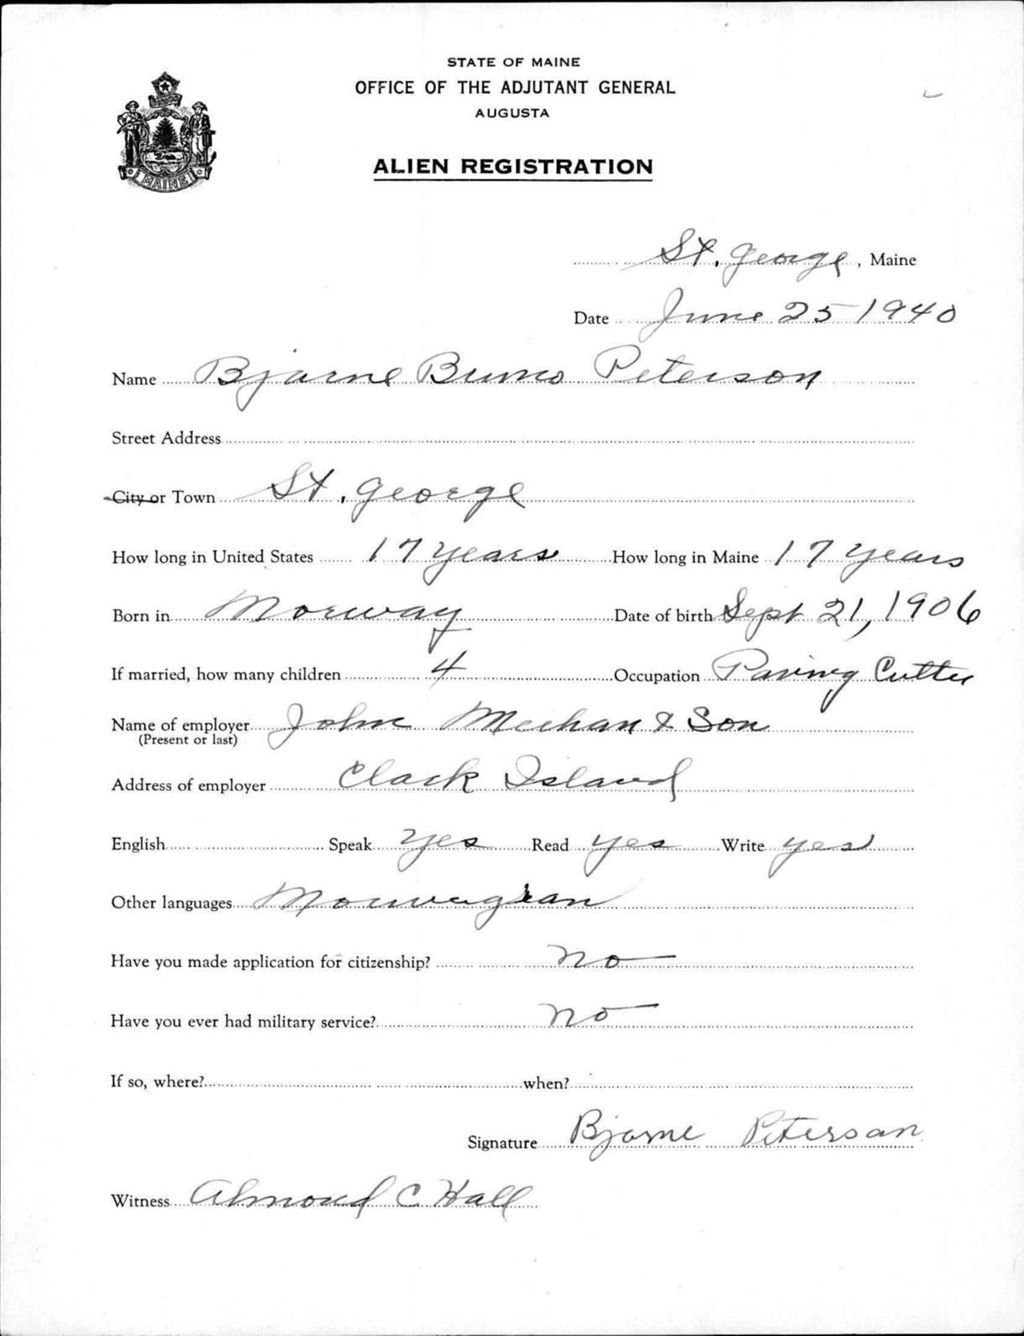 STATE OF MAINE
OFFICE OF THE ADJUTANT GENERAL
AUGUSTA
ALIEN REGISTRATION
MAINE
St. George, Maine
Date June 25 1940
Name Bjarne Bruno Peterson
Street Address
City or Town St. George
How long in United States 17 years How long in Maine 17 years
Born in Norway Date of birth Sept 21, 1906
If married, how many children 4 Occupation Paving Cutter
Name of employer John Meehan & Son
(Present or last)
Address of employer Clark Island
English Speak Yes Read yes Write yes
Other languages Norwegian
Have you made application for citizenship? no
Have you ever had military service? no
If so, where? when?
Signature Bjarne Peterson
Witness Almond C Hall